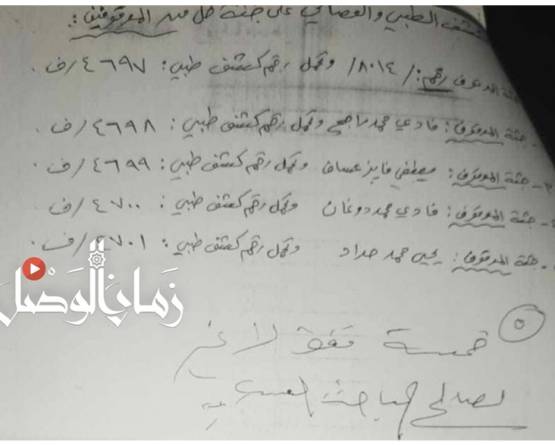 الطبي والقضائي على جثة كل من الموقوفين:
الموقوف رقم: /٨٠١٤/ وتحمل رقم كشف طبي: ٤٦٩٧/ف.
جثة الموقوف: فادي محمد راجح وتحمل رقم كشف طبي: ٤٦٩٨/ف.
جثة الموقوف: مصطفى فايز عساف وتحمل رقم كشف طبي: ٤٦٩٩/ف.
جثة الموقوف: فادي محمد دوغان وتحمل رقم كشف طبي: ٤٧٠٠/ف
جثة الموقوف: يحيى محمد حداد وتحمل رقم كشف طبي: ٤٧٠١/ف.
زمان الوصل
٥
خمسة فقط لا غير
لصالح المباحث العسكرية